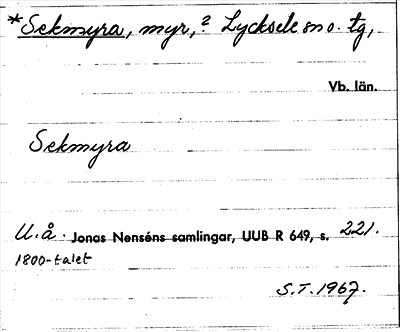 *Sekmyra, myr,? Lycksele sn o. tg,
Vb. län.
Sekmyra
U.å. Jonas Nenséns samlingar, UUB R 649, s. 221.
1800-talet
S.T. 1967.